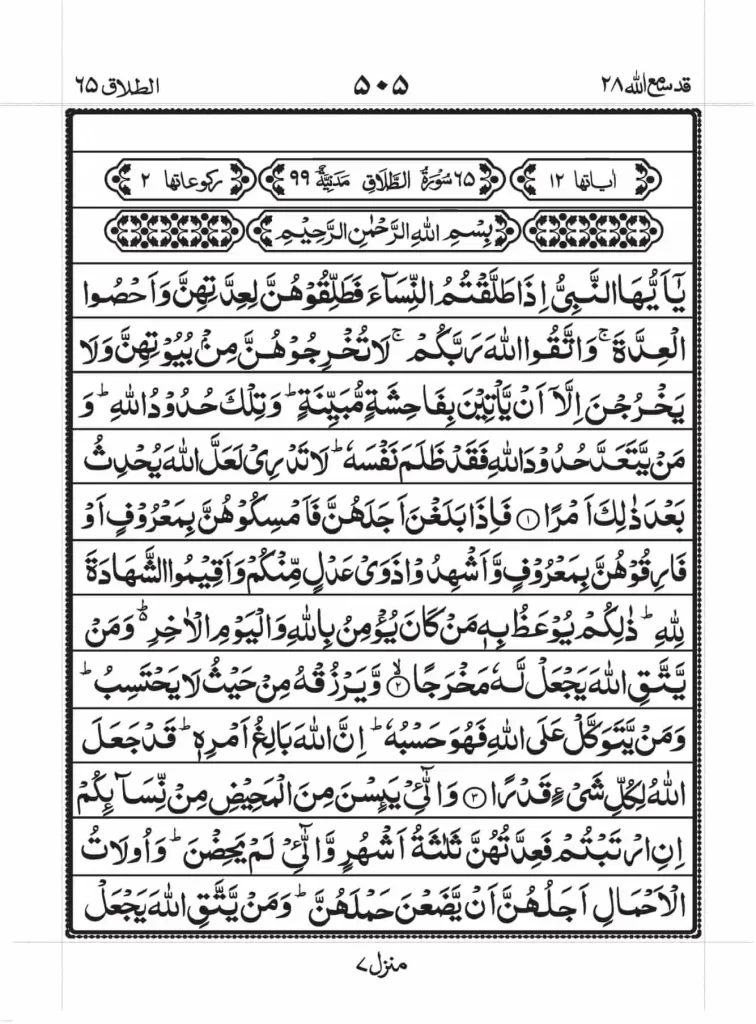 قد سمع الله ٢٨ ۵۰۵ الطلاق ٦۵
اٰیاتها ١٢ ٦۵ سُوْرَةُ الطَّلَاقِ مَدَنِیَّةٌ ٩٩ رکوعاتها ٢
بِسْمِ اللّٰهِ الرَّحْمٰنِ الرَّحِیْمِ
یٰۤاَیُّهَا النَّبِیُّ اِذَا طَلَّقْتُمُ النِّسَآءَ فَطَلِّقُوْهُنَّ لِعِدَّتِهِنَّ وَ اَحْصُوا
الْعِدَّةَ ۚ وَ اتَّقُوا اللّٰهَ رَبَّكُمْ ۚ لَا تُخْرِجُوْهُنَّ مِنْۢ بُیُوْتِهِنَّ وَ لَا
یَخْرُجْنَ اِلَّاۤ اَنْ یَّاْتِیْنَ بِفَاحِشَةٍ مُّبَیِّنَةٍ ؕ وَ تِلْكَ حُدُوْدُ اللّٰهِ ؕ وَ
مَنْ یَّتَعَدَّ حُدُوْدَ اللّٰهِ فَقَدْ ظَلَمَ نَفْسَهٗ ؕ لَا تَدْرِیْ لَعَلَّ اللّٰهَ یُحْدِثُ
بَعْدَ ذٰلِكَ اَمْرًا ۝١ فَاِذَا بَلَغْنَ اَجَلَهُنَّ فَاَمْسِكُوْهُنَّ بِمَعْرُوْفٍ اَوْ
فَارِقُوْهُنَّ بِمَعْرُوْفٍ وَّ اَشْهِدُوْا ذَوَیْ عَدْلٍ مِّنْكُمْ وَ اَقِیْمُوا الشَّهَادَةَ
لِلّٰهِ ؕ ذٰلِكُمْ یُوْعَظُ بِهٖ مَنْ كَانَ یُؤْمِنُ بِاللّٰهِ وَ الْیَوْمِ الْاٰخِرِ ؕ۬ وَ مَنْ
یَّتَّقِ اللّٰهَ یَجْعَلْ لَّهٗ مَخْرَجًا ۝٢ۙ وَّ یَرْزُقْهُ مِنْ حَیْثُ لَا یَحْتَسِبُ ؕ
وَ مَنْ یَّتَوَكَّلْ عَلَی اللّٰهِ فَهُوَ حَسْبُهٗ ؕ اِنَّ اللّٰهَ بَالِغُ اَمْرِهٖ ؕ قَدْ جَعَلَ
اللّٰهُ لِكُلِّ شَیْءٍ قَدْرًا ۝٣ وَ الّٰٓـِٔیْ یَىِٕسْنَ مِنَ الْمَحِیْضِ مِنْ نِّسَآىِٕكُمْ
اِنِ ارْتَبْتُمْ فَعِدَّتُهُنَّ ثَلٰثَةُ اَشْهُرٍ وَّ الّٰٓـِٔیْ لَمْ یَحِضْنَ ؕ وَ اُولَاتُ
الْاَحْمَالِ اَجَلُهُنَّ اَنْ یَّضَعْنَ حَمْلَهُنَّ ؕ وَ مَنْ یَّتَّقِ اللّٰهَ یَجْعَلْ
منزل ٧